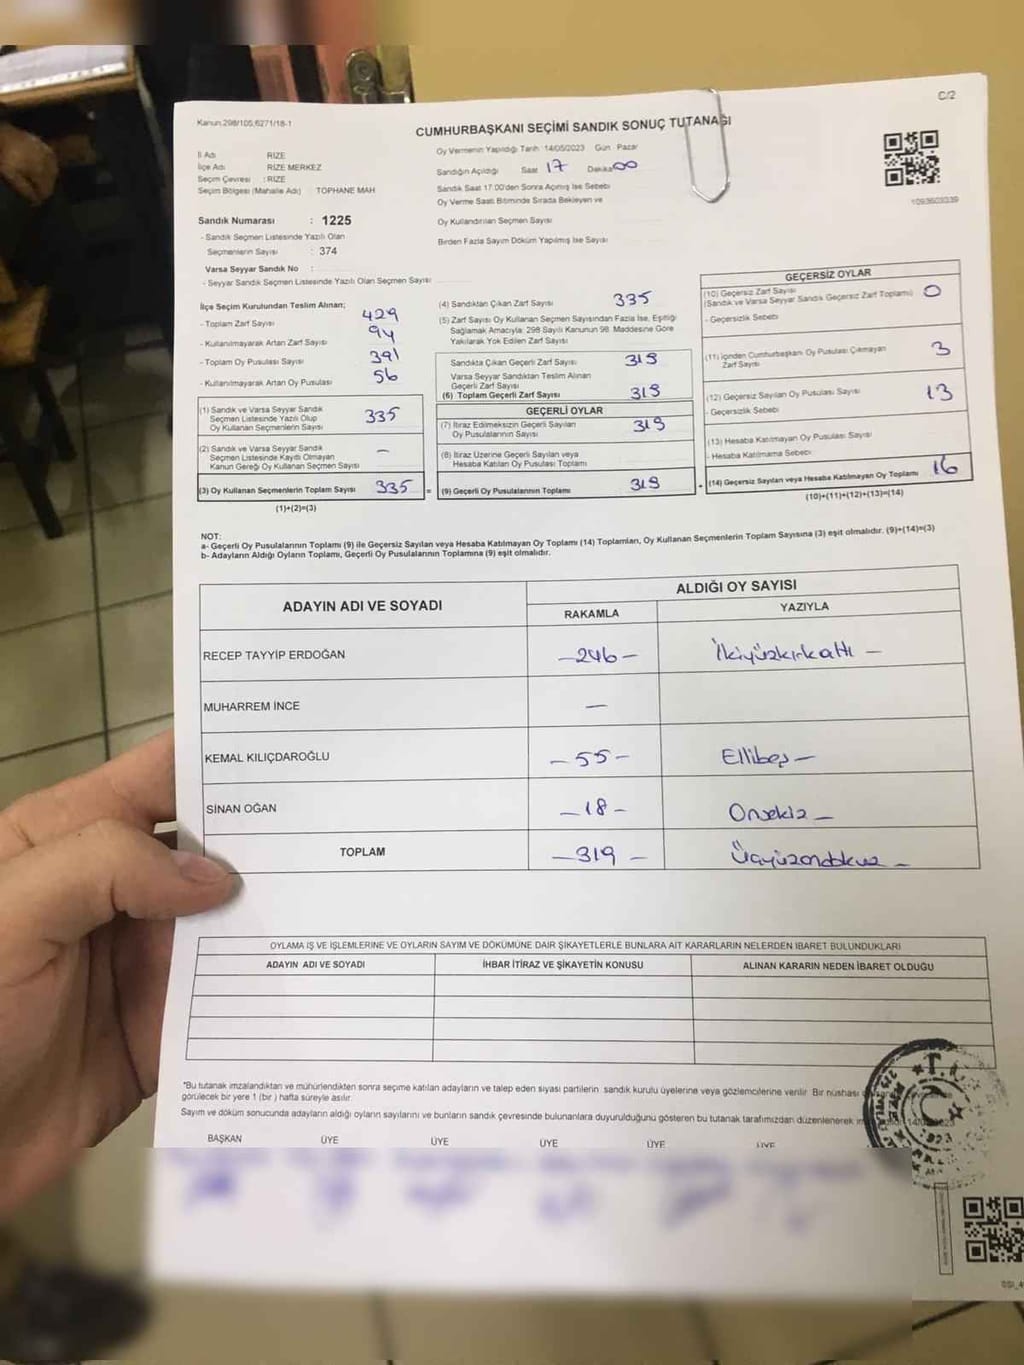 C/2
Kanun:298/105,6271/18-1
CUMHURBAŞKANI SEÇİMİ SANDIK SONUÇ TUTANAĞI
İl Adı RİZE
İlçe Adı RİZE MERKEZ
Seçim Çevresi : RİZE
Seçim Bölgesi (Mahalle Adı) : TOPHANE MAH
Oy Vermenin Yapıldığı Tarih :14/05/2023 Gün : Pazar
Sandığın Açıldığı Saat 17 Dakika 00
Sandık Saat 17.00'den Sonra Açılmış İse Sebebi
Oy Verme Saati Bitiminde Sırada Bekleyen ve
Oy Kullandırılan Seçmen Sayısı
Birden Fazla Sayım Döküm Yapılmış İse Sayısı
1093603339
Sandık Numarası : 1225
- Sandık Seçmen Listesinde Yazılı Olan
Seçmenlerin Sayısı : 374
Varsa Seyyar Sandık No :
- Seyyar Sandık Seçmen Listesinde Yazılı Olan Seçmen Sayısı
İlçe Seçim Kurulundan Teslim Alınan;
- Toplam Zarf Sayısı 429
- Kullanılmayarak Artan Zarf Sayısı 94
- Toplam Oy Pusulası Sayısı 391
- Kullanılmayarak Artan Oy Pusulası 56
(1) Sandık ve Varsa Seyyar Sandık
Seçmen Listesinde Yazılı Olup
Oy Kullanan Seçmenlerin Sayısı 335
(2) Sandık ve Varsa Seyyar Sandık
Seçmen Listesinde Kaydı Olmayan
Kanun Gereği Oy Kullanan Seçmen Sayısı —
(3) Oy Kullanan Seçmenlerin Toplam Sayısı 335 =
(1)+(2)=(3)
(4) Sandıktan Çıkan Zarf Sayısı 335
(5) Zarf Sayısı Oy Kullanan Seçmen Sayısından Fazla İse, Eşitliği
Sağlamak Amacıyla 298 Sayılı Kanunun 98. Maddesine Göre
Yakılarak Yok Edilen Zarf Sayısı
Sandıkta Çıkan Geçerli Zarf Sayısı 319
Varsa Seyyar Sandıktan Teslim Alınan
Geçerli Zarf Sayısı
(6) Toplam Geçerli Zarf Sayısı 319
GEÇERLİ OYLAR
(7) İtiraz Edilmeksizin Geçerli Sayılan
Oy Pusulalarının Sayısı 319
(8) İtiraz Üzerine Geçerli Sayılan veya
Hesaba Katılan Oy Pusulası Toplamı
(9) Geçerli Oy Pusulalarının Toplamı 319 +
GEÇERSİZ OYLAR
(10) Geçersiz Zarf Sayısı
(Sandık ve Varsa Seyyar Sandık Geçersiz Zarf Toplamı) 0
- Geçersizlik Sebebi
(11) İçinden Cumhurbaşkanı Oy Pusulası Çıkmayan
Zarf Sayısı 3
(12) Geçersiz Sayılan Oy Pusulası Sayısı 13
- Geçersizlik Sebebi
(13) Hesaba Katılmayan Oy Pusulası Sayısı
- Hesaba Katılmama Sebebi
(14) Geçersiz Sayılan veya Hesaba Katılmayan Oy Toplamı 16
(10)+(11)+(12)+(13)=(14)
NOT:
a- Geçerli Oy Pusulalarının Toplamı (9) ile Geçersiz Sayılan veya Hesaba Katılmayan Oy Toplamı (14) Toplamları, Oy Kullanan Seçmenlerin Toplam Sayısına (3) eşit olmalıdır. (9)+(14)=(3)
b- Adayların Aldığı Oyların Toplamı, Geçerli Oy Pusulalarının Toplamına (9) eşit olmalıdır.
ADAYIN ADI VE SOYADI
ALDIĞI OY SAYISI
RAKAMLA YAZIYLA
RECEP TAYYİP ERDOĞAN —246— İkiyüzkırkaltı —
MUHARREM İNCE —
KEMAL KILIÇDAROĞLU —55— Ellibeş —
SİNAN OĞAN —18— Onsekiz —
TOPLAM —319— Üçyüzondokuz —
OYLAMA İŞ VE İŞLEMLERİNE VE OYLARIN SAYIM VE DÖKÜMÜNE DAİR ŞİKAYETLERLE BUNLARA AİT KARARLARIN NELERDEN İBARET BULUNDUKLARI
ADAYIN ADI VE SOYADI İHBAR İTİRAZ VE ŞİKAYETİN KONUSU ALINAN KARARIN NEDEN İBARET OLDUĞU
*Bu tutanak imzalandıktan ve mühürlendikten sonra seçime katılan adayların ve talep eden siyasi partilerin sandık kurulu üyelerine veya gözlemcilerine verilir. Bir nüshası
görülecek bir yere 1 (bir) hafta süreyle asılır.
Sayım ve döküm sonucunda adayların aldığı oyların sayılarını ve bunların sandık çevresinde bulunanlara duyurulduğunu gösteren bu tutanak tarafımızdan düzenlenerek
BAŞKAN ÜYE ÜYE ÜYE ÜYE ÜYE
T.C.